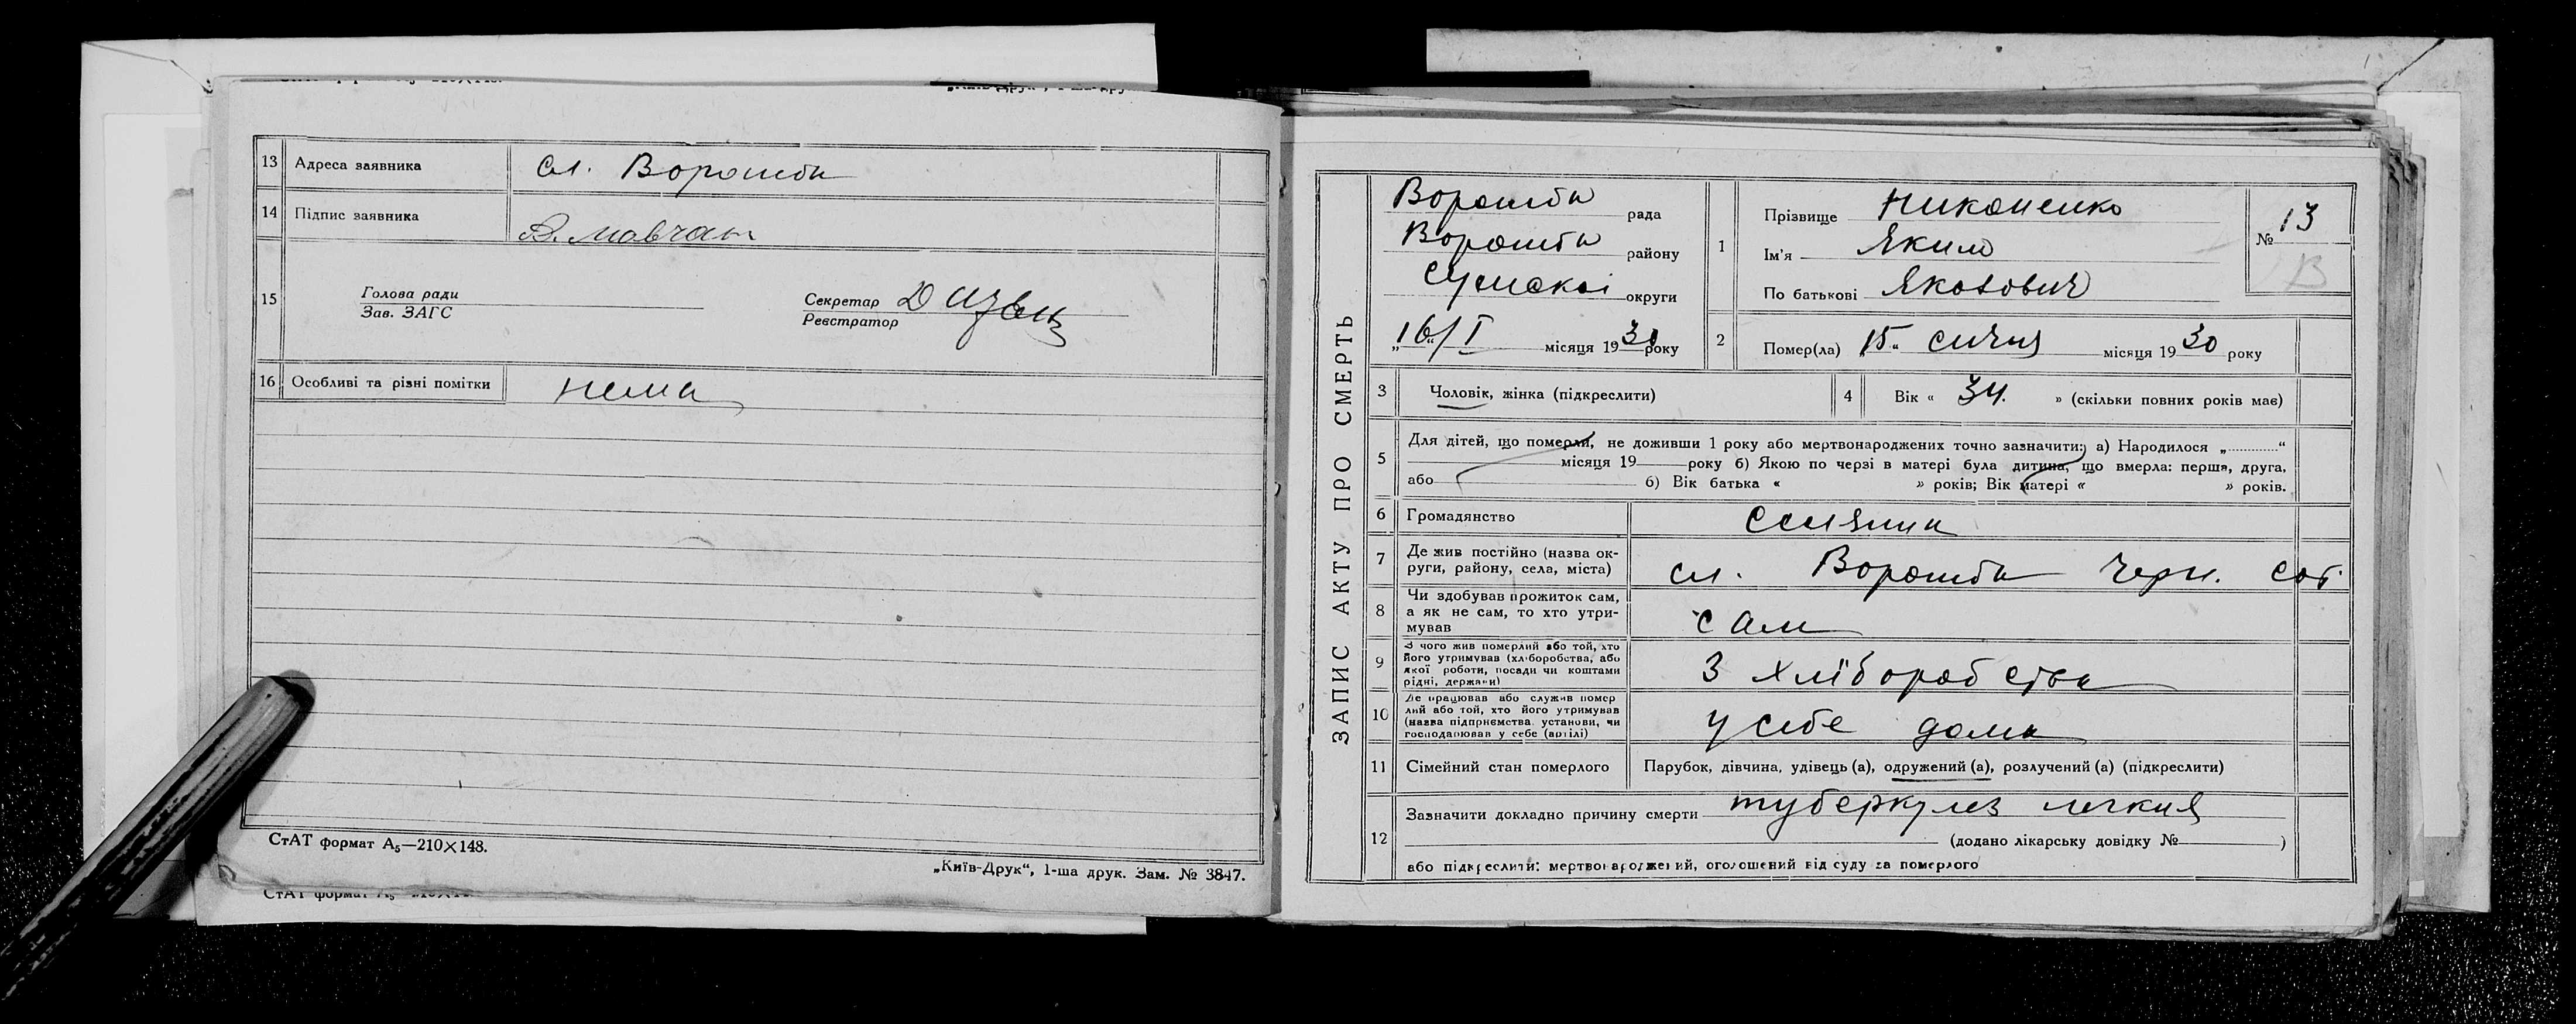 13 Адреса заявника сл. Ворожба
14 Підпис заявника В. Мовчан
15 Голова ради
Зав. ЗАГС
Секретар
Реєстратор
16 Особливі та різні помітки нема
СтАТ формат А₅—210×148.
„Київ-Друк“, 1-ша друк. Зам. № 3847.
СтАТ формат А₅
ЗАПИС АКТУ ПРО СМЕРТЬ
Ворожба рада
Ворожба району
Сумскоі округи
„16“/I місяця 1930 року
1 Прізвище Никоненко
Ім'я Яким
По батькові Якович
№ 13
В
2 Помер(ла) „15“ січня місяця 1930 року
3 Чоловік, жінка (підкреслити)
4 Вік « 34. » (скільки повних років має)
5 Для дітей, що померли, не доживши 1 року або мертвонароджених точно зазначити: а) Народилося „............“
місяця 19 року б) Якою по черзі в матері була дитина, що вмерла: перша, друга,
або б) Вік батька « » років; Вік матері « » років.
6 Громадянство
7 Де жив постійно (назва ок-
руги, району, села, міста) сл. Ворожба Черн. сот.
8 Чи здобував прожиток сам,
а як не сам, то хто утри-
мував сам
9 З чого жив померлий або той, хто
його утримував (хліборобства, або
якої роботи, посади чи коштами
рідні, держави) З хліборобства
10 Де працював або служив помер
лий або той, хто його утримував
(назва підприємства, установи, чи
господарював у себе (артілі) у себе дома
11 Сімейний стан померлого Парубок, дівчина, удівець (а), одружений (а), розлучений (а) (підкреслити)
12 Зазначити докладно причину смерти туберкулез легкия
(додано лікарську довідку № )
або підкреслити: мертвонароджений, оголошений від суду за померлого